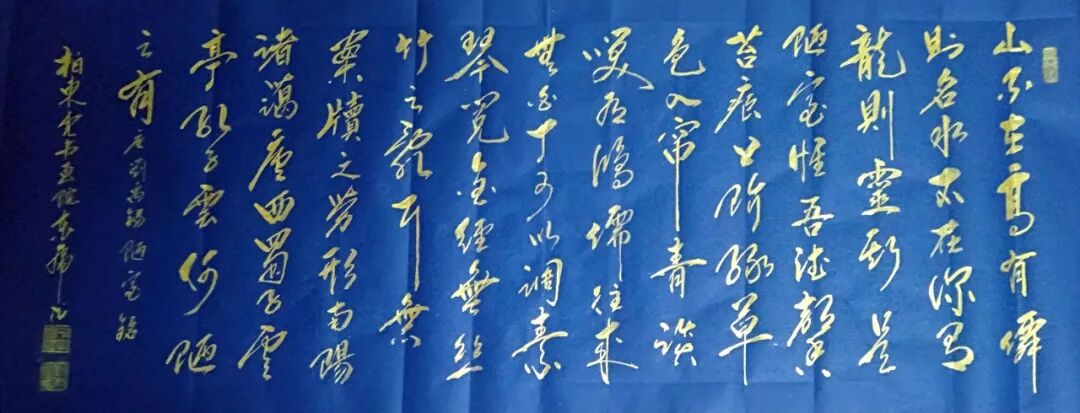 山不在高有僊
則名水不在深有
龍則靈斯是
陋室惟吾德馨
苔痕上階緑草
色入帘青談
笑有鴻儒往來
無白丁可以調素
琴閱金經無丝
竹之亂耳無
案牘之勞形南陽
諸葛廬西蜀子雲
亭孔子雲何陋
之有 唐劉禹錫陋室銘
柏東